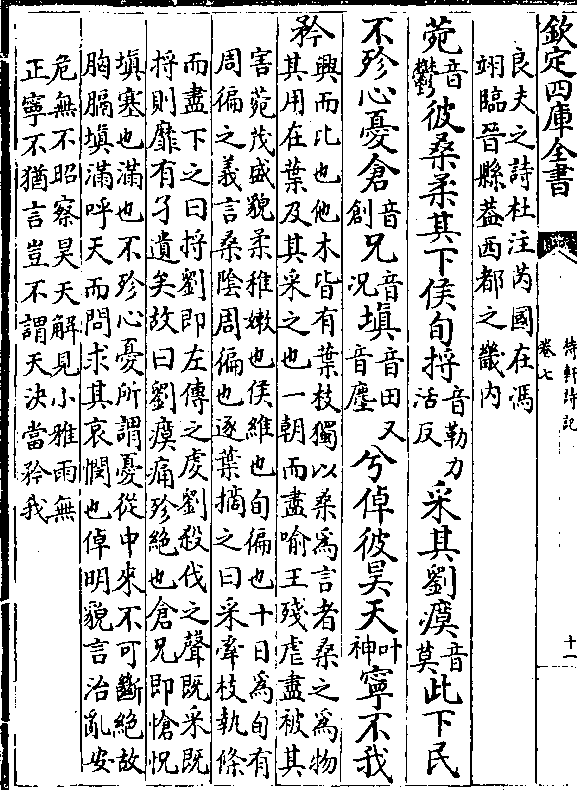 欽定四庫全書
待軒詩記
卷七
十一
良夫之詩杜注芮國在馮
翊臨晉縣葢西都之畿内
菀音鬱彼桑柔其下侯旬捋音勒力活反采其劉瘼音莫此下民
不殄心憂倉音創兄音况填音田又音塵兮倬彼昊天叶神寧不我
矜
興而比也他木皆有葉枝獨以桑為言者桑之為物
其用在葉及其采之也一朝而盡喻王殘虐盡被其
害菀茂盛貌柔稚嫩也侯維也旬徧也十日為旬有
周徧之義言桑陰周徧也逐葉摘之曰采牽枝執條
而盡下之曰捋劉即左傳之虔劉殺伐之聲既采既
捋則靡有孑遺矣故曰劉瘼痛殄絶也倉兄即愴怳
填塞也滿也不殄心憂所謂憂從中來不可斷絶故
胸膈填滿呼天而問求其哀憫也倬明貌言治亂安
危無不昭察昊天解見小雅雨無
正寧不猶言豈不謂天決當矜我